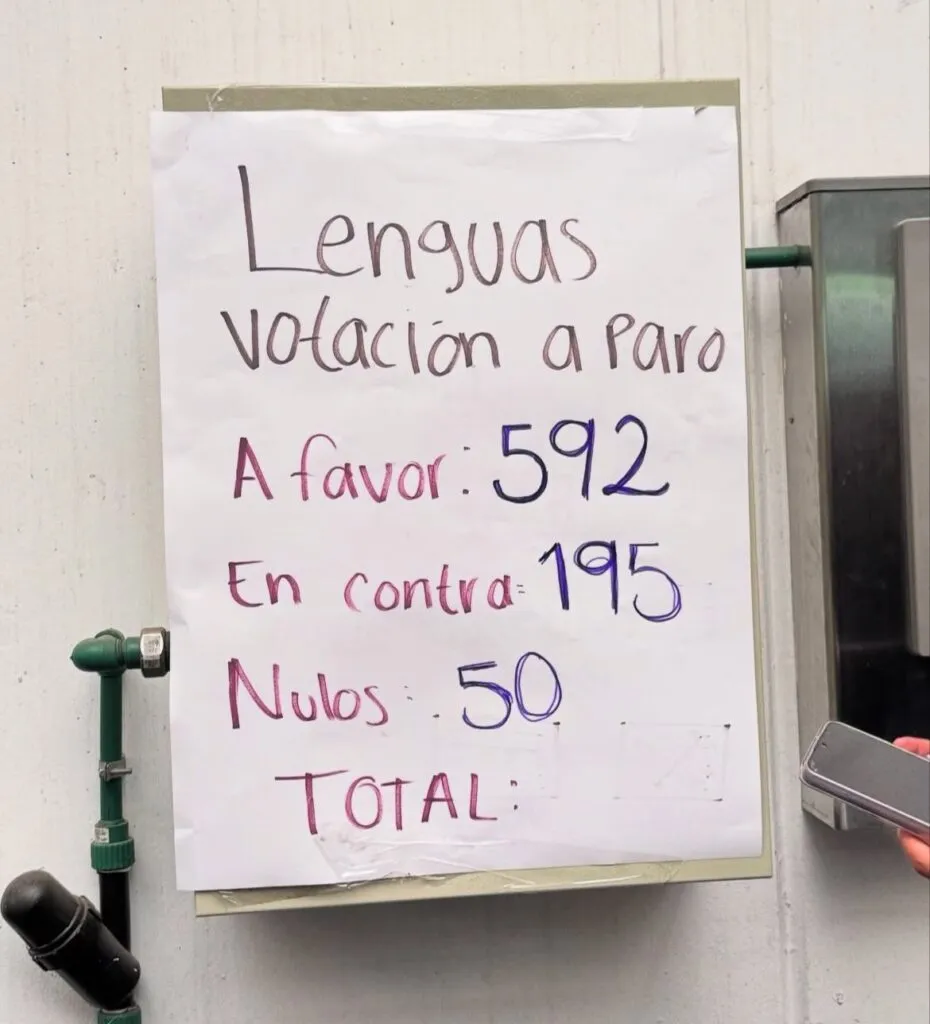 Lenguas
votación a Paro
A favor: 592
En contra: 195
Nulos: 50
TOTAL: